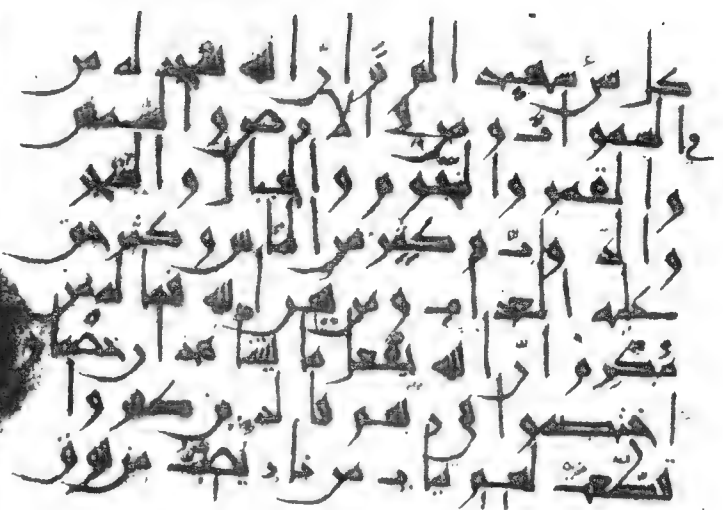 كل شيء شهيد الم تر ان الله يسجد له من
في السموت ومن في الارض والشمس
والقمر والنجوم والجبال والشجر
والدواب وكثير من الناس وكثير حق
عليه العذاب ومن يهن الله فما له من
مكرم ان الله يفعل ما يشا هذان خصمان
اختصموا في ربهم فالذين كفروا
قطعت لهم ثياب من نار يصب من فوق